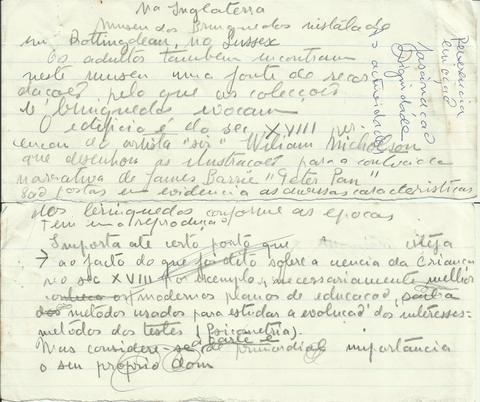 Na Inglaterra
Museu dos Brinquedos instalado
em Rottingdean, no Sussex
Os adultos também encontram
neste museu uma fonte de recor
dações pelo que as colecções
de brinquedos evocam
O edifício é do sec. XVIII per-
tenceu ao artista "sir" William Nicholson
que desenhou as ilustrações para a conhecida
narrativa de James Barrie "Peter Pan"
São postas em evidencia as diversas caracteristicas
dos brinquedos conforme as epocas
Tem uma reprodução
Importa até certo ponto que esteja
→ ao facto do que foi dito sobre a ciencia da Criança
no sec XVIII por exemplo, necessariamente melhor
os modernos planos de educação,
métodos usados para estudar a evolução dos interesses-
métodos dos testes (Psicometria).
Mas considere-se à parte e de primordial importância
o seu próprio dom
Persistencia
emoção
fascinação
Dignidade
actividade